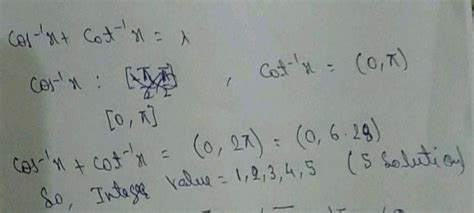 Cos⁻¹x + Cot⁻¹x = λ
Cos⁻¹x : [0, π] , Cot⁻¹x = (0, π)
Cos⁻¹x + cot⁻¹x = (0, 2π) = (0, 6.28)
So, Integer value = 1, 2, 3, 4, 5 (5 Solution)